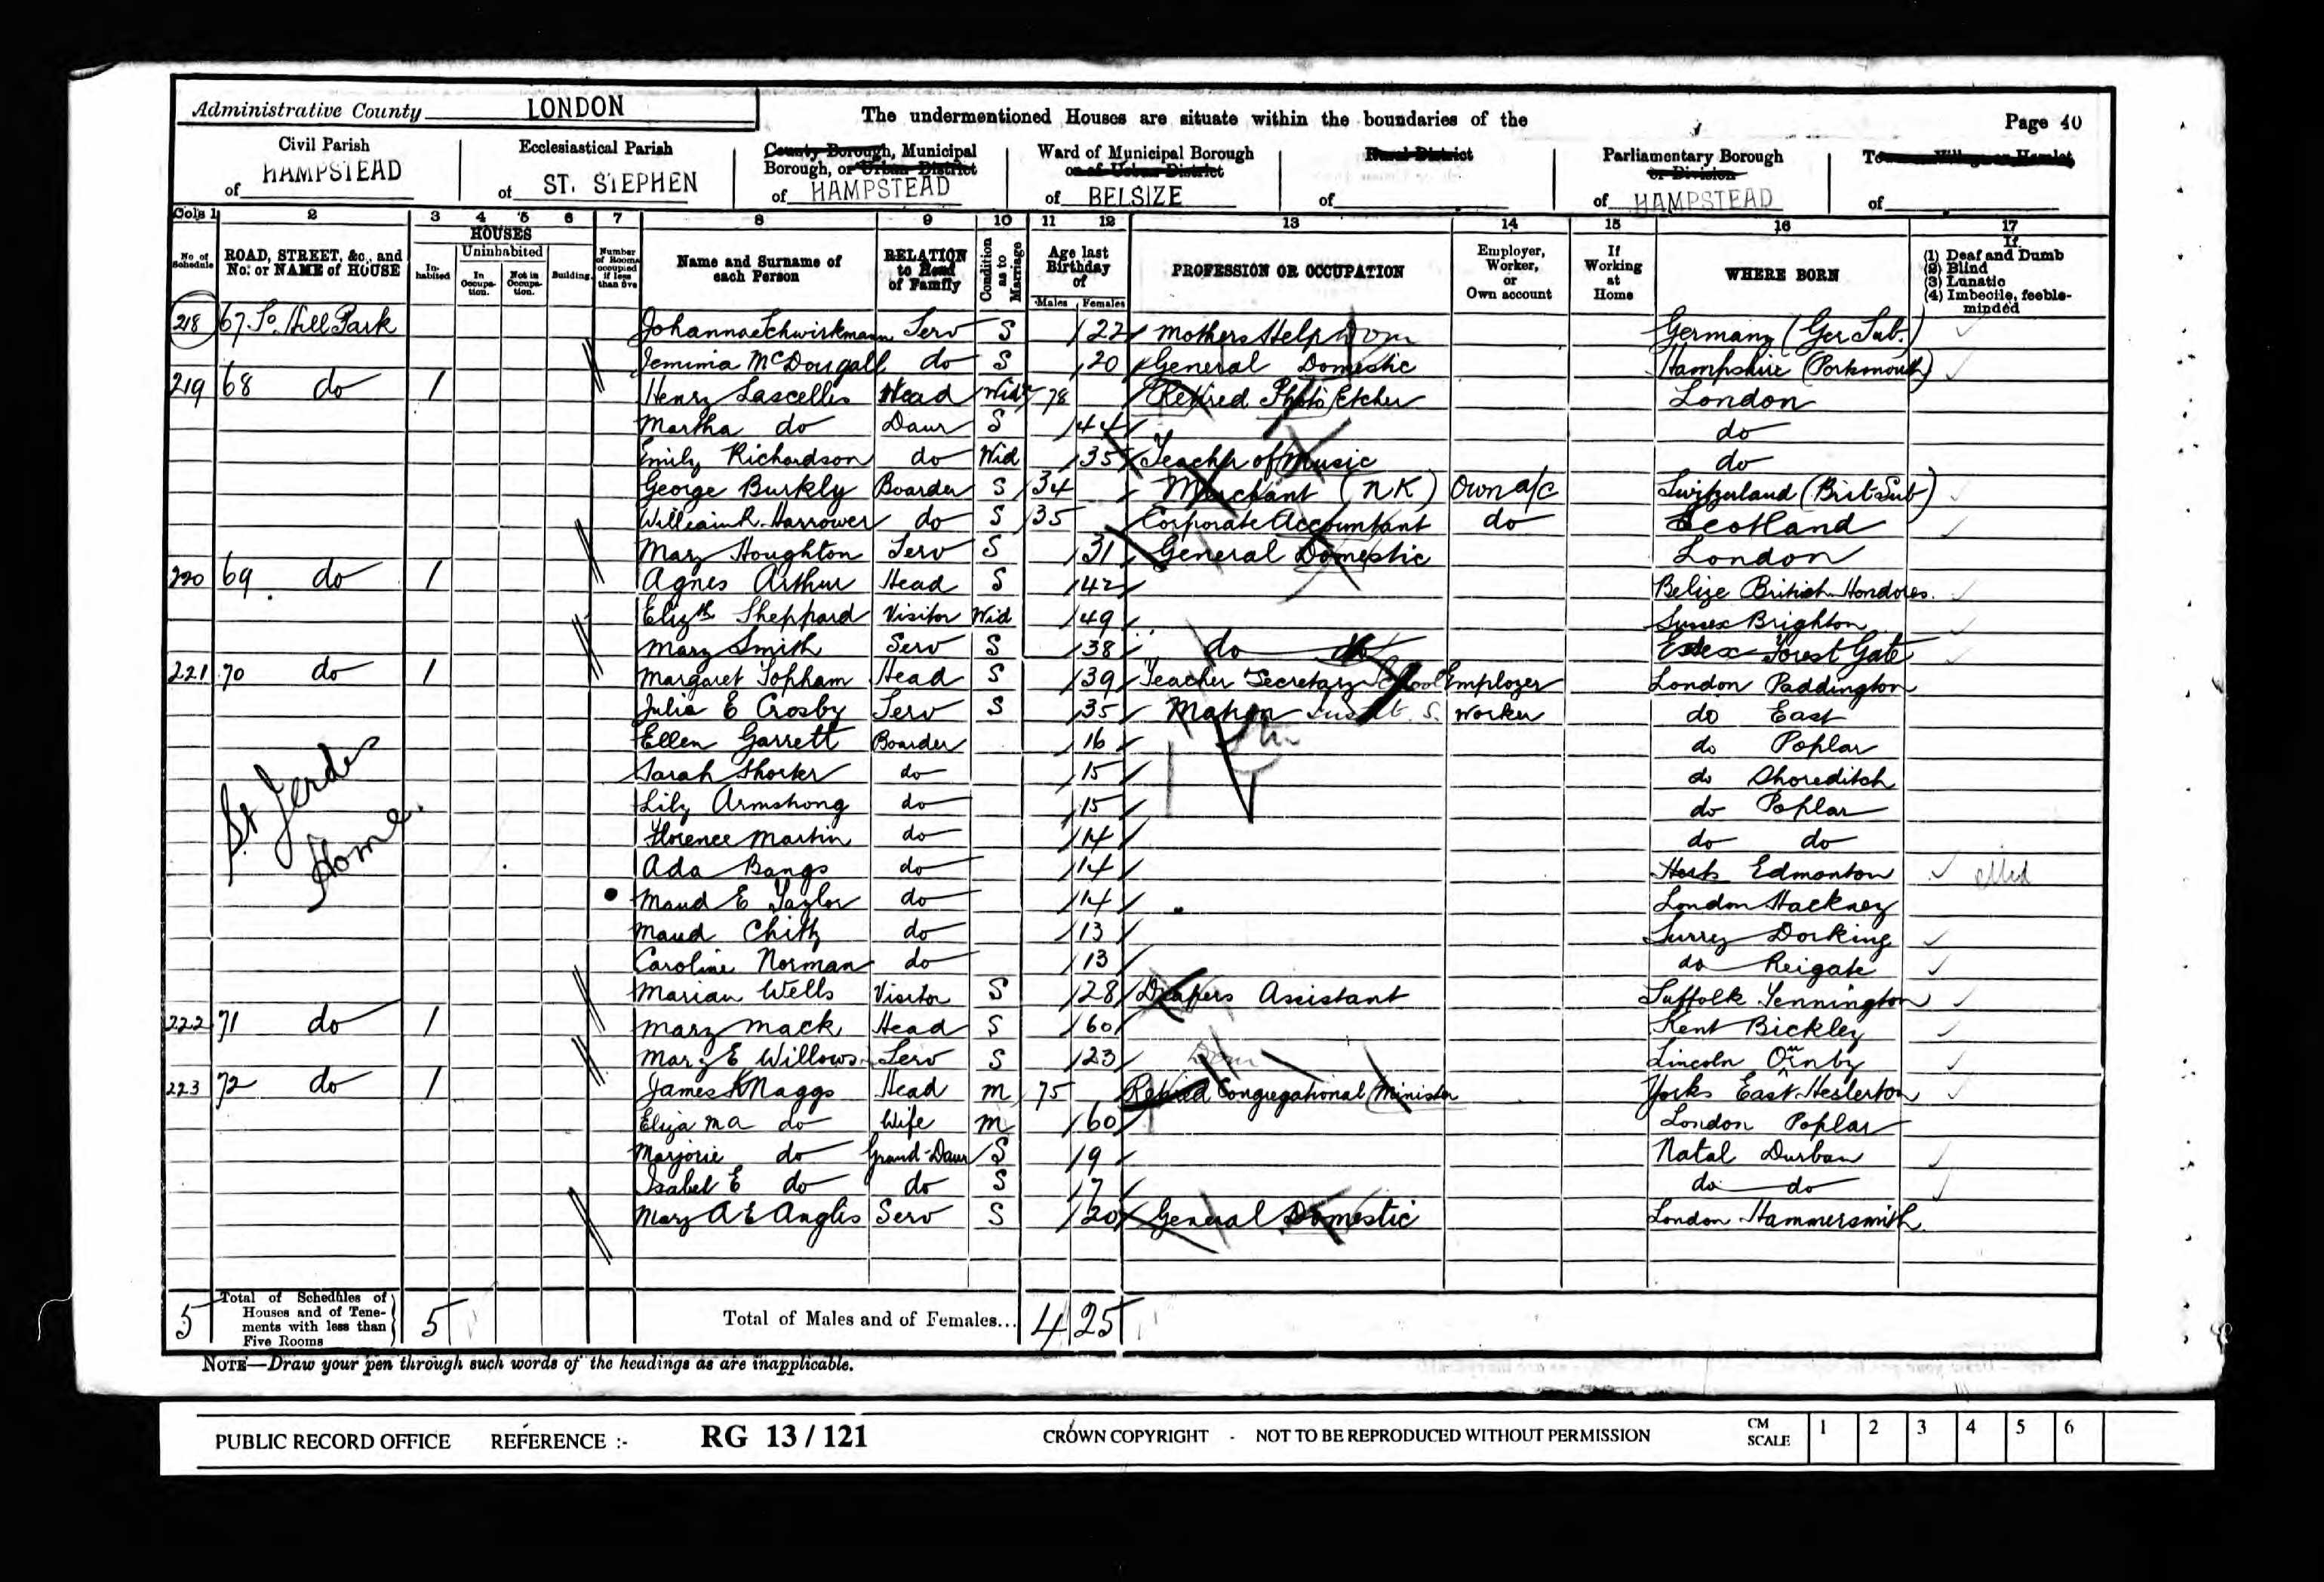 Administrative County LONDON The undermentioned Houses are situate within the boundaries of the Page 40
Civil Parish of HAMPSTEAD Ecclesiastical Parish of ST. STEPHEN County Borough, Municipal Borough, or Urban District of HAMPSTEAD Ward of Municipal Borough or of Urban District of BELSIZE Rural District of Parliamentary Borough or Division of HAMPSTEAD Town or Village or Hamlet of
Cols 1 2 3 4 5 6 7 8 9 10 11 12 13 14 15 16 17
No of Schedule ROAD, STREET, &c., and No. or NAME of HOUSE HOUSES Inhabited Uninhabited In Occupation. Not in Occupation. Building Number of Rooms occupied if less than five Name and Surname of each Person RELATION to Head of Family Condition as to Marriage Age last Birthday of Males Females PROFESSION OR OCCUPATION Employer, Worker, or Own account If Working at Home WHERE BORN If (1) Deaf and Dumb (2) Blind (3) Lunatic (4) Imbecile, feeble-minded
218 67 So. Hill Park Johanna Schwirkmann Serv S 22 Mothers Help Dom Germany (Ger Sub.)
Jemima McDougall do S 20 General Domestic Hampshire (Portsmouth)
219 68 do 1 Henry Lascelles Head Widr 78 Retired Photo Etcher London
Martha do Daur S 44 do
Emily Richardson do Wid 35 Teacher of Music do
George Burkly Boarder S 34 Merchant (NK) Own a/c Switzerland (Brit Sub)
William R. Harrower do S 35 Corporate Accountant do Scotland
Mary Houghton Serv S 31 General Domestic London
220 69 do 1 Agnes Arthur Head S 42 Belize British Hondores.
Elizth Sheppard Visitor Wid 49 Sussex Brighton
Mary Smith Serv S 38 do do Essex Forest Gate
221 70 do 1 Margaret Topham Head S 39 Teacher Secretary School Employer London Paddington
Julia E Crosby Serv S 35 Matron Instit. S. Worker do East
Ellen Garrett Boarder 16 do Poplar
Sarah Shorter do 15 do Shoreditch
Lily Armstrong do 15 do Poplar
St
Home
Florence Martin do 14 do do
Ada Bangs do 14 Herts Edmonton
Maud E Taylor do 14 London Hackney
Maud Chitty do 13 Surrey Dorking
Caroline Norman do 13 do Reigate
Marian Wells Visitor S 28 Drapers Assistant Suffolk Yennington
222 71 do 1 Mary Mack Head S 60 Kent Bickley
Mary E Willows Serv S 23 Dom Lincoln
223 72 do 1 James K Maggs Head M 75 Retired Congregational Minister Yorks East Heslerton
Eliza M A do Wife M 60 London Poplar
Marjorie do Grand-Daur S 9 Natal Durban
Isabel E do do S 7 do do
Mary A E Anglis Serv S 20 General Domestic London Hammersmith.
5 Total of Schedules of Houses and of Tenements with less than Five Rooms 5 Total of Males and of Females... 4 25
NOTE—Draw your pen through such words of the headings as are inapplicable.
PUBLIC RECORD OFFICE REFERENCE :- RG 13 / 121 CROWN COPYRIGHT - NOT TO BE REPRODUCED WITHOUT PERMISSION CM SCALE 1 2 3 4 5 6